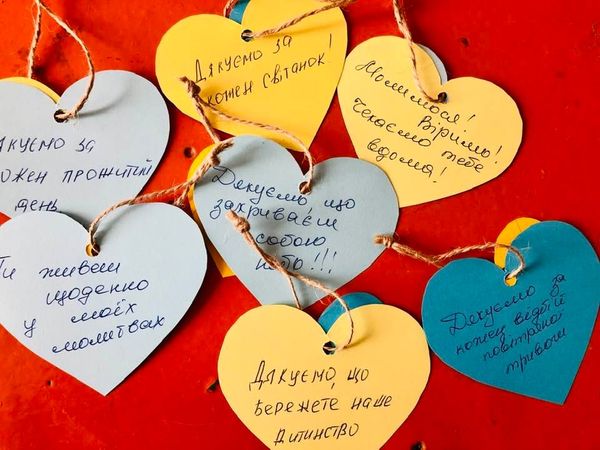 Дякуємо за
кожен світанок!
Молимося!
Віримо!
Чекаємо тебе
вдома!
якуємо за
ожен прожитий
день
Дякуємо, що
закриваєш
собою
небо!!!
Ти живеш
щоденно
у моєх
молитвах
Дякуємо за
кожен відбій
повітряної
тривоги
Дякуємо, що
бережете наше
дитинство